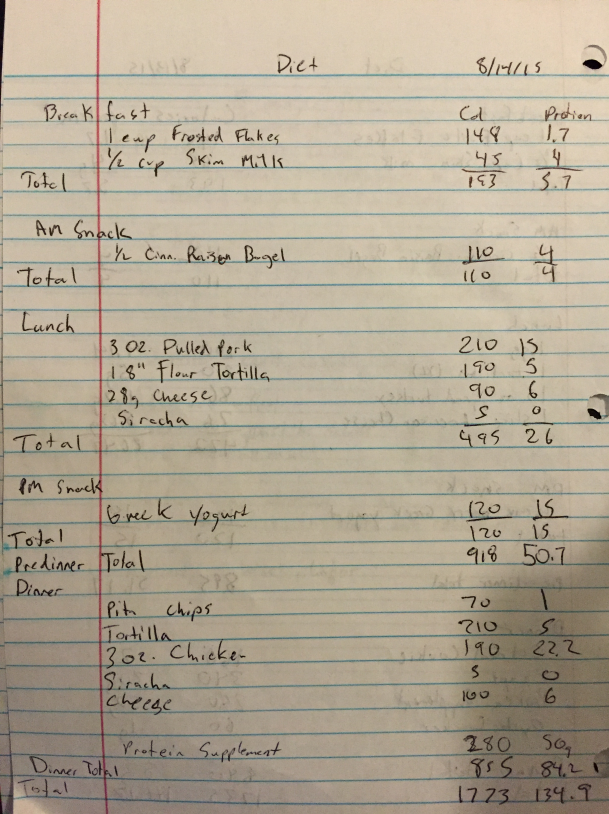 Diet 8/14/15
Breakfast Cal Protien
1 cup Frosted Flakes 148 1.7
1/2 cup Skim Milk 45 4
Total 193 5.7
AM Snack
1/2 Cinn. Raisen Bagel 110 4
Total 110 4
Lunch
3 oz. Pulled Pork 210 15
1 8" Flour Tortilla 190 5
28g Cheese 90 6
Siracha 5 0
Total 495 26
PM Snack
Greek Yogurt 120 15
Total 120 15
Predinner Total 918 50.7
Dinner
Pita Chips 70 1
Tortilla 210 5
3 oz. Chicken 190 22.2
Siracha 5 0
Cheese 100 6
Protein Supplement 280 50g
Dinner Total 855 84.2
Total 1773 134.9